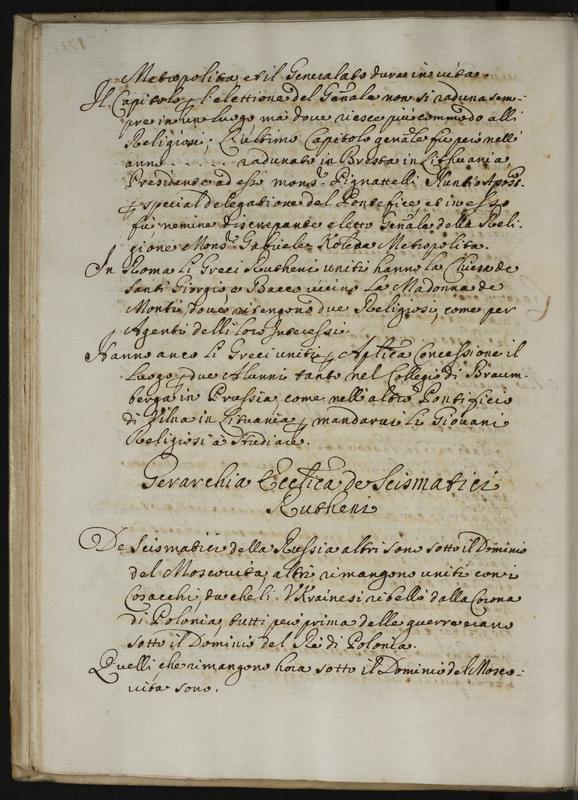 Metropolita, et il Generalato dura in vita.
Il Capitolo p l'elettione del Gñale non si raduna sem-
pre in un luogo ma dove riesce più commodo alli
Religiosi; L'ultimo Capitolo gen̄ale fù però nell'
anno . . . . . radunato in Bresta in Lithuania,
Presidente ad esso mons.r Pignattelli Nuntio Apos.
p special delegatione del Pontefice et in esso
fù nemine discrepante eletto Gñale della Reli-
gione Mons.r Gabriele Kolenda Metropolita.
In Roma li Greci Rutheni uniti hanno la Chiesa de
Santi Giorgio e Bacco vicino la Madonna de
Monti, dove risengono due Religiosi, come per
Agenti delli loro Interessi.
Hanno anco li Greci uniti p Aplica Concessione il
luogo p due Alunni tanto nel Collegio di Braum-
berga in Prussia come nell'altro Pontificio
di Vilna in Lituania p mandarvi li Giovani
Religiosi à studiare.
Gerarchia Ecctica de Scismatici
Rutheni
De Scismatici della Russia altri sono sotto il Dominio
del Moscovita, altri rimangono uniti con i
Cosacchi, da che li Vkrainesi ribellò dalla Corona
di Polonia, tutti però prima delle guerre erano
sotto il Dominio del Rè di Polonia.
Quelli, che rimangono hora sotto il Dominio del Mosco-
vita sono.